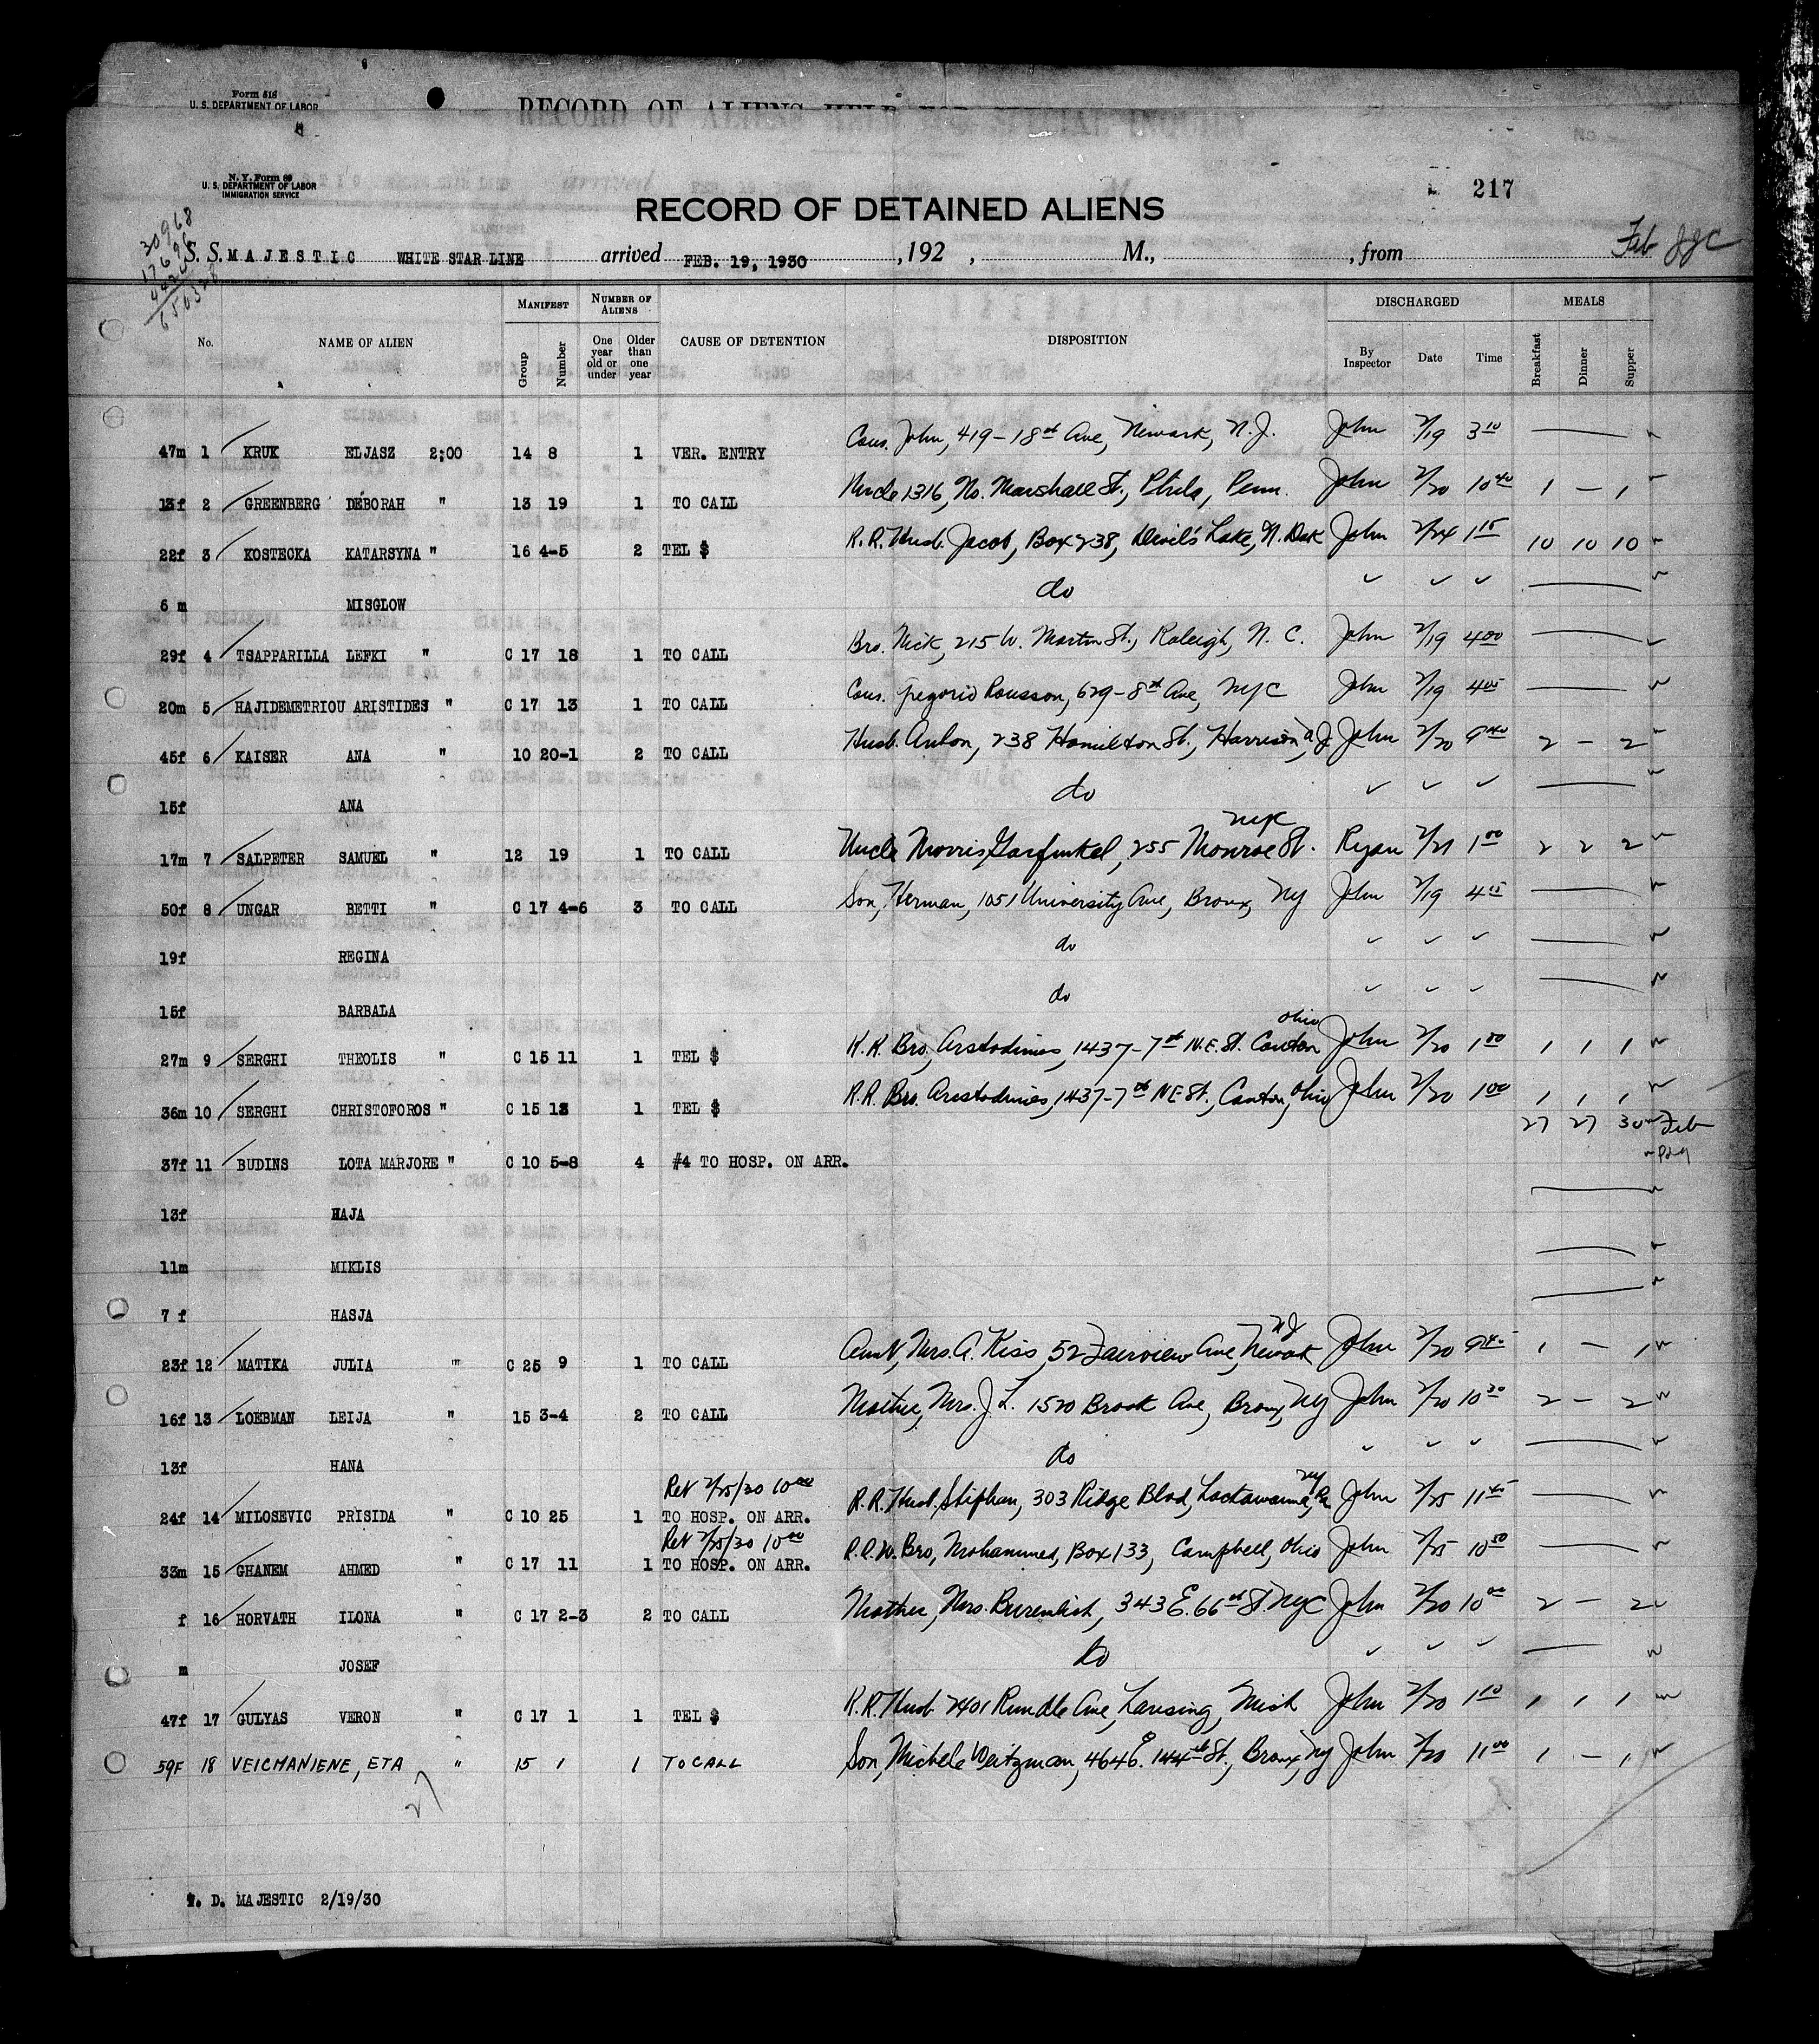 Form 518
U. S. DEPARTMENT OF LABOR
RECORD OF ALIENS HELD FOR SPECIAL INQUIRY
N. Y. Form 89
U. S. DEPARTMENT OF LABOR
IMMIGRATION SERVICE
217
RECORD OF DETAINED ALIENS
30968
17696
S. S. MAJESTIC WHITE STAR LINE arrived FEB. 19, 1930 , 192 , M., , from Feb
No. NAME OF ALIEN MANIFEST Group Number NUMBER OF ALIENS One year old or under Older than one year CAUSE OF DETENTION DISPOSITION DISCHARGED By Inspector Date Time MEALS Breakfast Dinner Supper
47m 1 KRUK ELJASZ 2:00 14 8 1 VER. ENTRY Cous. John, 419-18th Ave, Newark, N.J. John 2/19 3 10
13f 2 GREENBERG DEBORAH " 13 19 1 TO CALL Uncle 1316, No. Marshall St., Phila, Penn. John 2/20 10 40 1 - 1
22f 3 KOSTECKA KATARSYNA " 16 4-5 2 TEL $ R.R. Husb. Jacob, Box 238, Devil's Lake, N. Dak John 2/24 1 15 10 10 10
6 m MISGLOW do
29f 4 TSAPPARILLA LEFKI " C 17 18 1 TO CALL Bro. Nick, 215 W. Martin St., Raleigh, N. C. John 2/19 4 00
20m 5 HAJIDEMETRIOU ARISTIDES " C 17 13 1 TO CALL Cous. Gregorio Rousson, 629-8th Ave, NYC John 2/19 4 05
45f 6 KAISER ANA " 10 20-1 2 TO CALL Husb. Anton, 238 Hamilton St., Harrison, N.J. John 2/20 9 40 2 - 2
15f ANA do
17m 7 SALPETER SAMUEL " 12 19 1 TO CALL Uncle Morris Garfunkel, 255 Monroe St. NYC Ryan 2/21 1 00 2 2 2
50f 8 UNGAR BETTI " C 17 4-6 3 TO CALL Son, Herman, 1051 University Ave, Bronx, NY John 2/19 4 15
19f REGINA do
15f BARBALA do
27m 9 SERGHI THEOLIS " C 15 11 1 TEL $ R.R. Bro, Aristodimos, 1437-7th N.E. St. Canton Ohio John 2/20 1 00 1 1 1
36m 10 SERGHI CHRISTOFOROS " C 15 13 1 TEL $ R.R. Bro. Aristodimos, 1437-7th NE St., Canton, Ohio John 2/20 1 00 1 1 1
27 27 30 Feb
37f 11 BUDINS LOTA MARJORE " C 10 5-8 4 #4 TO HOSP. ON ARR.
13f HAJA
11m MIKLIS
7 f HASJA
23f 12 MATIKA JULIA " C 25 9 1 TO CALL Aunt, Mrs. A. Kiss, 52 Fairview Ave, Newark NJ John 2/20 9 45 1 - 1
16f 13 LOEBMAN LEIJA " 15 3-4 2 TO CALL Mother, Mrs. J. L. 1520 Brook Ave, Bronx, NY John 2/20 10 30 2 - 2
13f HANA do
24f 14 MILOSEVIC PRISIDA " C 10 25 1 Ret 2/25/30 10 00 TO HOSP. ON ARR. R.R. Husb. Stiphan, 303 Ridge Blvd, Lackawanna, NY John 2/25 11 45
33m 15 GHANEM AHMED " C 17 11 1 Ret 2/25/30 10 00 TO HOSP. ON ARR. Bro, Mohammed, Box 133, Campbell, Ohio John 2/25 10 50
f 16 HORVATH ILONA " C 17 2-3 2 TO CALL Mother, Mrs. 343 E. 66th St. NYC John 2/20 10 00 2 - 2
m JOSEF do
47f 17 GULYAS VERON " C 17 1 1 TEL $ R.R. Husb. 2401 Rundle Ave, Lansing, Mich John 2/20 1 10 1 1 1
59F 18 VEICMANIENE, ETA " 15 1 1 TO CALL Son, Michele Weitzman, 464 E. 144th St., Bronx, NY John 2/20 11 00 1 - 1
27
T. D. MAJESTIC 2/19/30